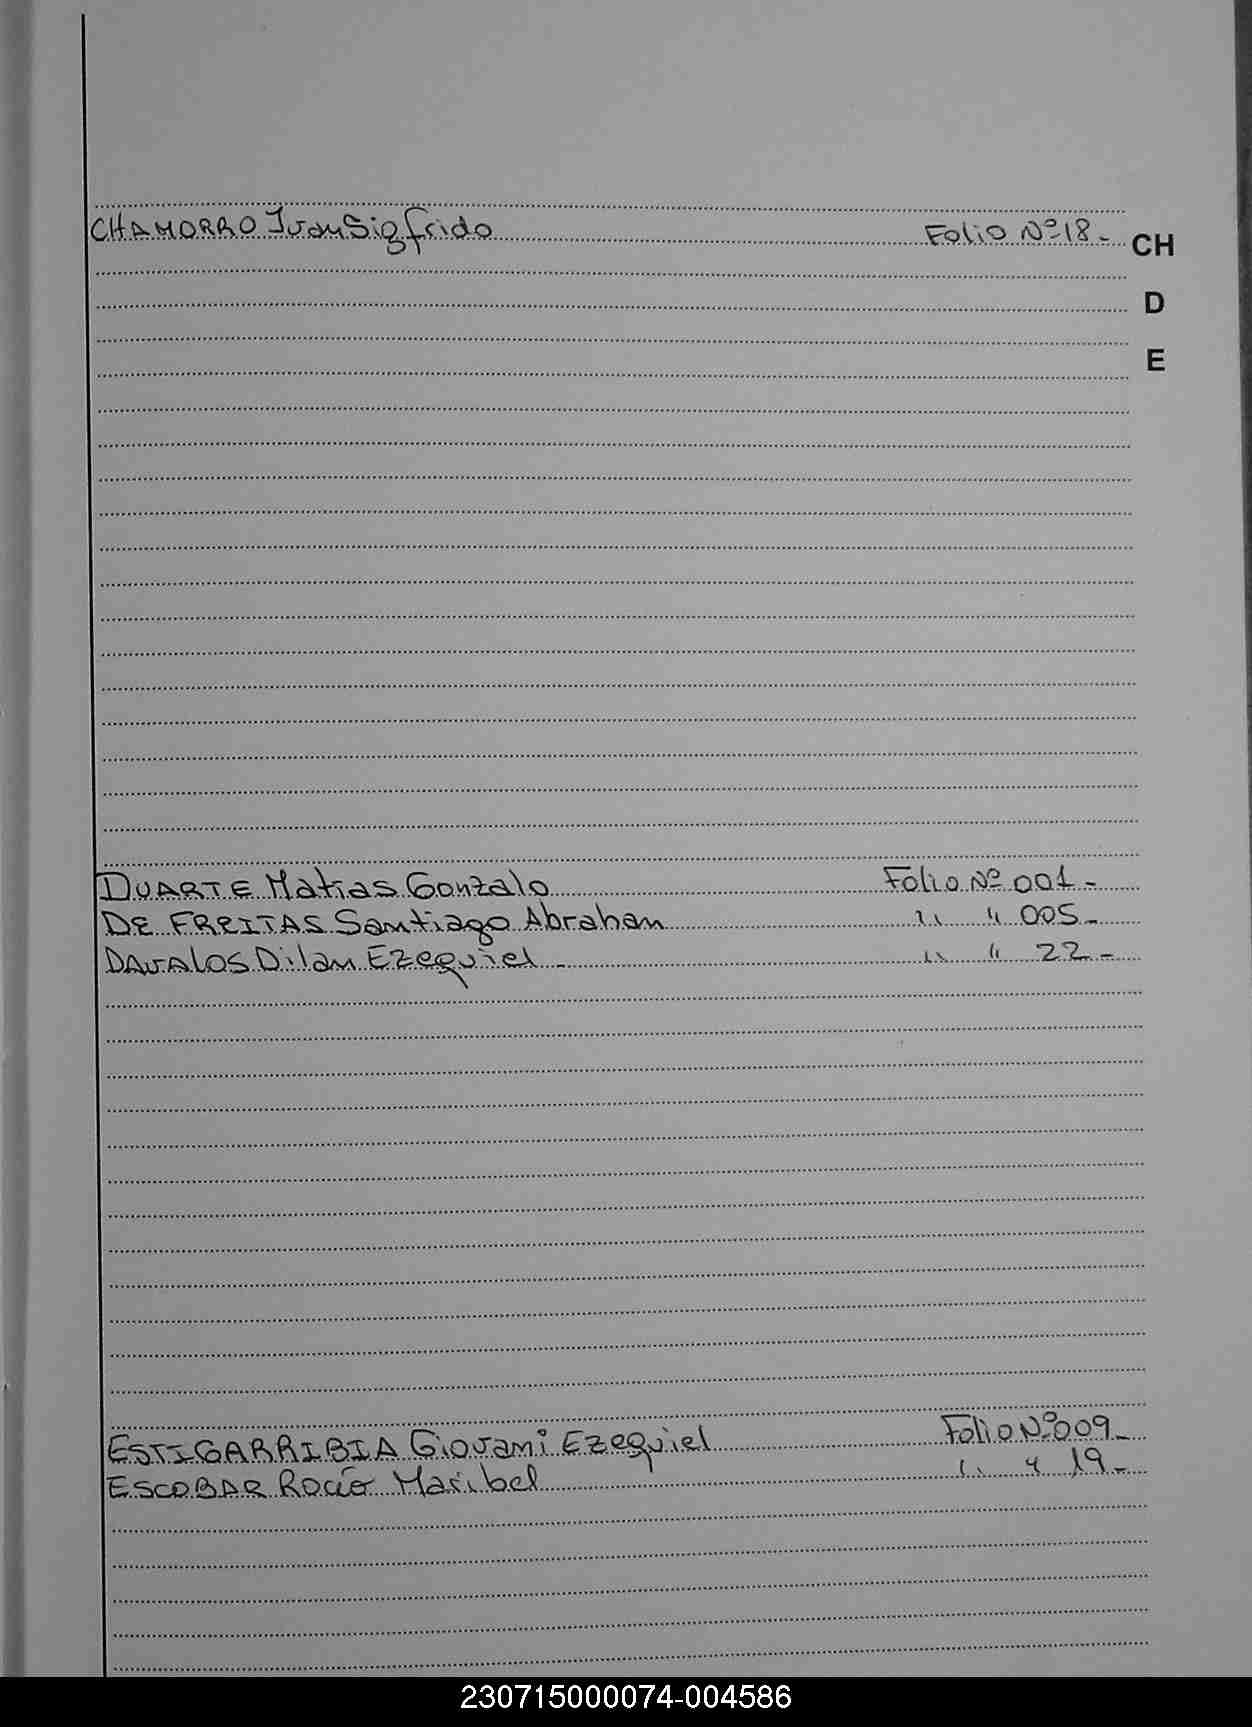 CHAMORRO Ivan Sigfrido Folio Nº 18- CH
D
E
DUARTE Matias Gonzalo Folio Nº 001-
DE FREITAS Santiago Abraham " " 005-
DAVALOS Dilan Ezequiel - " " 22-
ESTIGARRIBIA Giovani Ezequiel Folio Nº 009-
ESCOBAR Rocío Maribel " " 19-
230715000074-004586